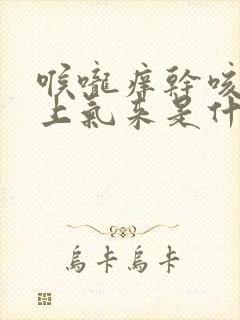 喉嚨痒幹咳
上氣来是什
烏卡烏卡